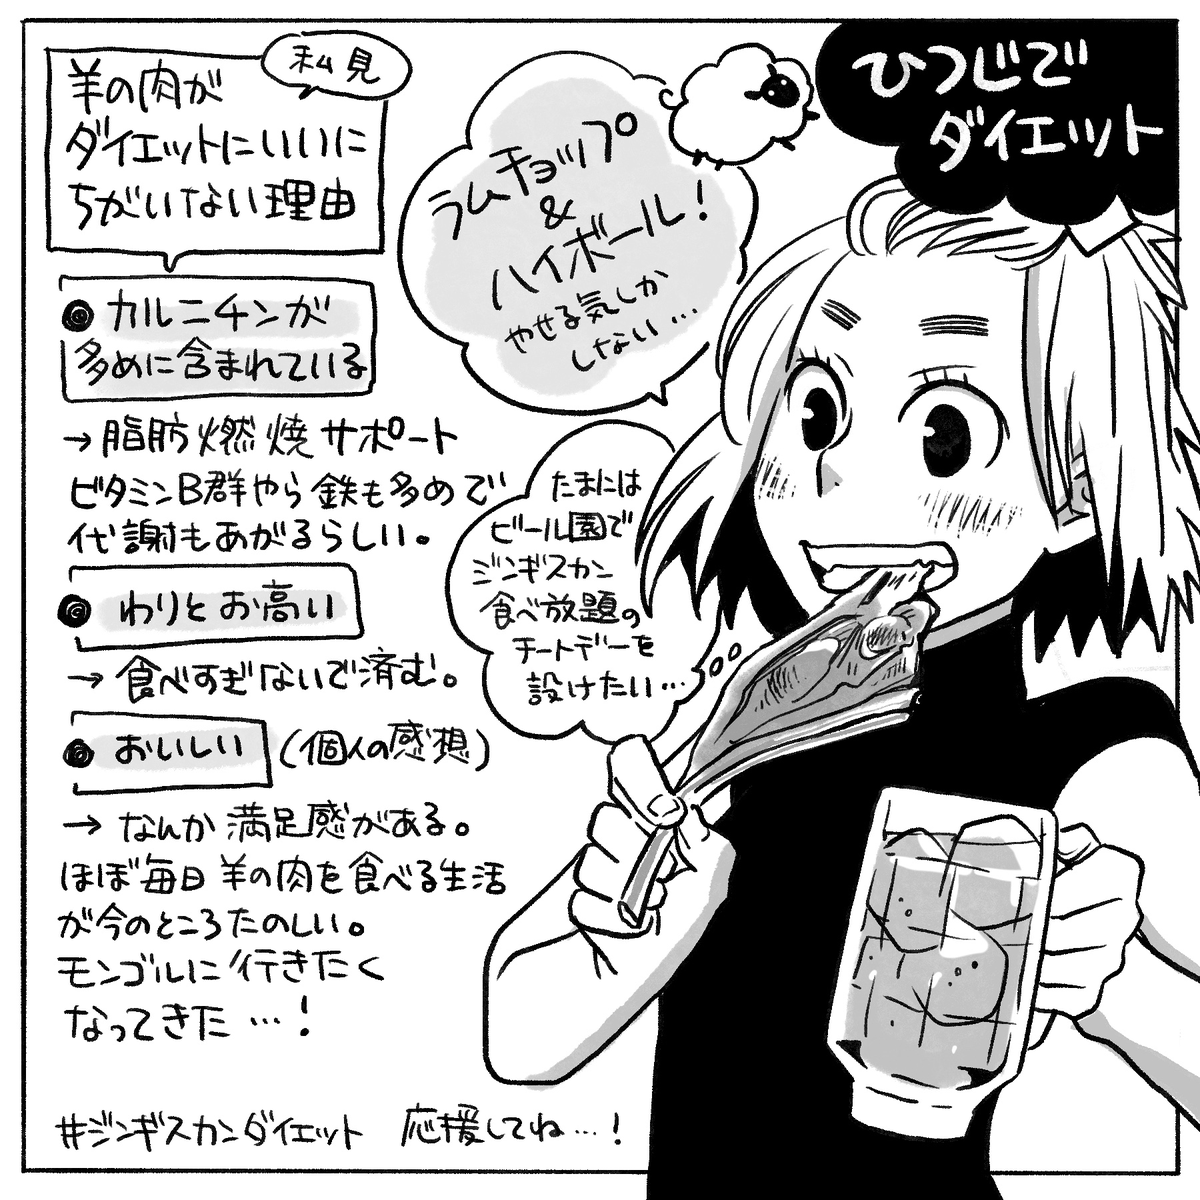 ひつじで
ダイエット
私見
羊の肉が
ダイエットにいいに
ちがいない理由
ラムチョップ
&
ハイボール!
やせる気しか
しない…
● カルニチンが
多めに含まれている
→ 脂肪燃焼サポート
ビタミンB群やら鉄も多めで
代謝もあがるらしい。
● わりとお高い
→ 食べすぎないで済む。
● おいしい (個人の感想)
→ なんか満足感がある。
ほぼ毎日羊の肉を食べる生活
が今のところたのしい。
モンゴルに行きたく
なってきた…!
たまには
ビール園で
ジンギスカン
食べ放題の
チートデーを
設けたい…
#ジンギスカンダイエット 応援してね…!